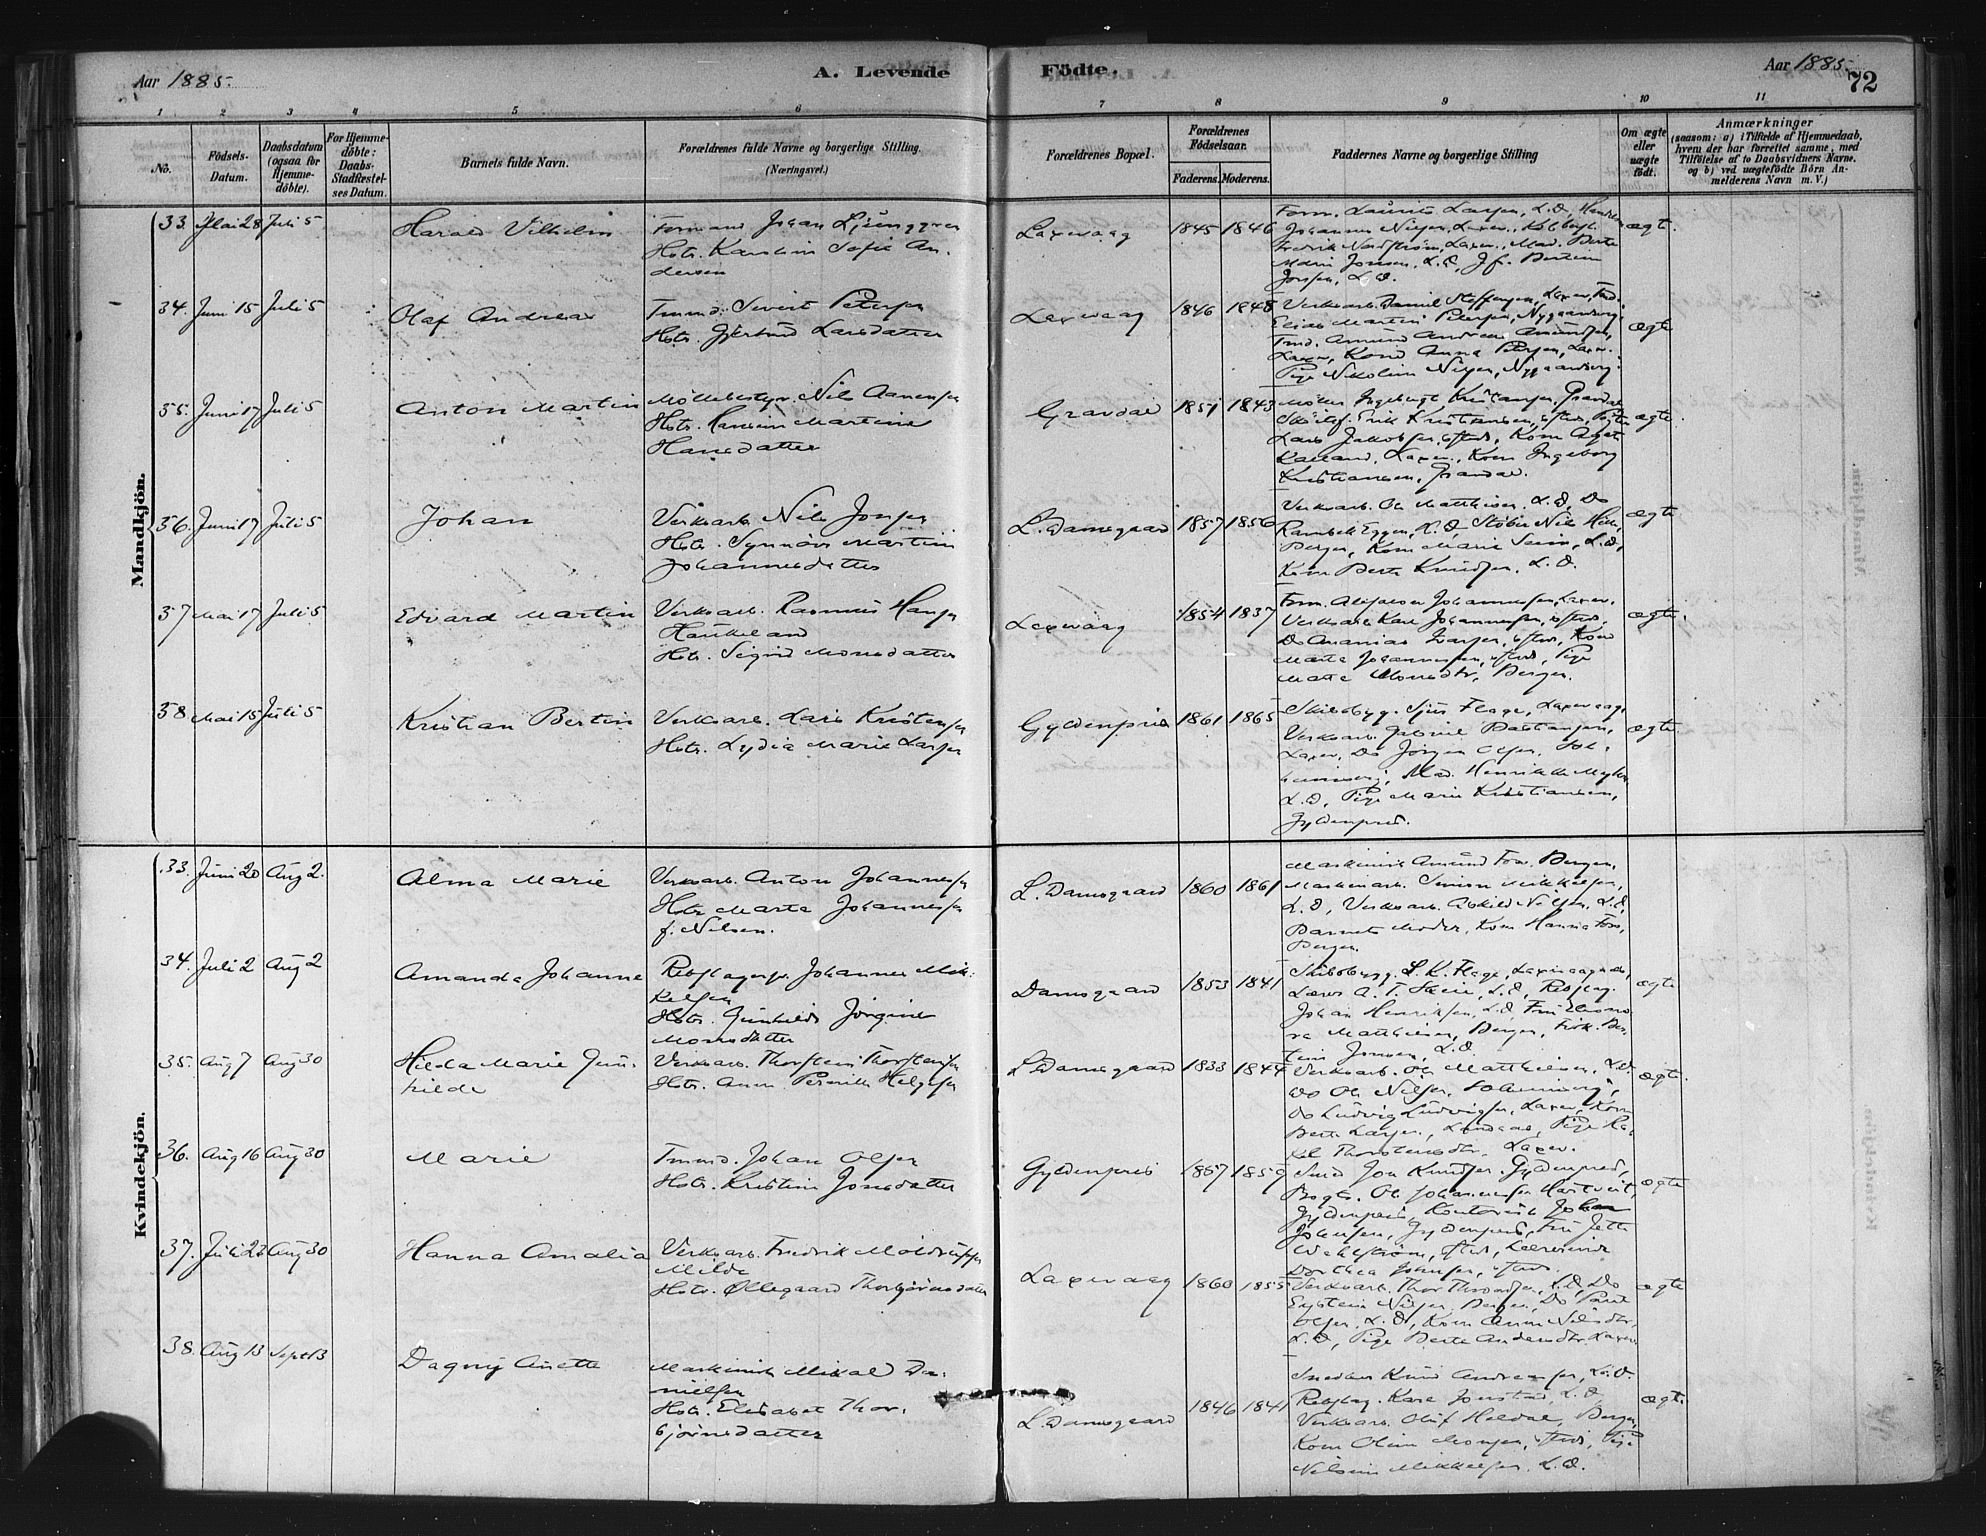 Aar 1885.
A. Levende
Födte.
Aar 1885.
72
1 2 3 4 5 6 7 8 9 10 11
No.
Födsels-
Datum.
Daabsdatum
(ogsaa for
Hjemme-
döbte).
For Hjemme-
döbte:
Daabs-
Stadfæstel-
ses Datum.
Barnets fulde Navn.
Forældrenes fulde Navne og borgerlige Stilling.
(Næringsvei.)
Forældrenes Bopæl.
Forældrenes
Födselsaar.
Faderens. Moderens.
Faddernes Navne og borgerlige Stilling
Om ægte
eller
uægte
født.
Anmærkninger
(saasom: a) i Tilfælde af Hjemmedaab,
hvem der har forrettet samme, med
Tilföielse af to Daabsvidners Navne,
og b) ved uægtefödte Börn An-
melderens Navn m. V.)
Mandkjön.
33. Mai 28 Juli 5
Harald Vilhelm
Formand Johan Ljunggren
Hstr. Karolin Sofie An-
dersen
Laxevaag
1845 1846
Form. Laurits Larsen, L.D,
Johannes Nilsen, Laxev.,
Fredrik Nordström, Laxev., Mad. Berte
Jonsen, L.D.
ægt.
34. Juni 15 Juli 5
Olaf Andreas
Tmmd. Sivert Petersen
Hstr. Gjertrud Larsdatter
Laxevaag
1846 1848
Verksarb. Daniel Steffensen, Laxev.,
Elias Martin Petersen, Nygaardsvg.
Tmd. Amund Andreas Amundsen,
Laxev., Kone Anna Petersen, Laxev.
Pige Nikoline Nilsen, Nygaardsvg.
ægte
35. Juni 17 Juli 5
Anton Martin
Möllebestyr. Nils Aanensen
Hstr. Martine
Hansdatter
Gravdal
1851 1843
Möller Ingebrigt Kristiansen, Gravdal
Erik Kristiansen,
Lars Jakobsen, Kone
Laxev., Kone Ingeborg
Kristiansen, Gravdal.
ægte.
36. Juni 17 Juli 5
Johan
Verksarb. Nils Jonsen
Hstr. Synnöve Martine
Johannesdatter
L. Damsgaard
1857 1856
Verksarb. Ole Matthiesen, L.D, Do
Eggen, L.D, Stöber Nils
Bergen, Kone Marie Seim, L.D,
Kone Berte Knudsen, L.D.
ægte
37 Mai 17 Juli 5
Edvard Martin
Verksarb. Rasmus Hansen
Haukeland
Hstr. Sigrid Monsdatter
Laxevaag
1854 1837
Form. Johannesen, Laxev.
Verksarb. Karl Johannesen,
Do Ananias Larsen, Kone
Marta Johannesen, Pige
Marta Monsdtr, Bergen.
ægte.
38 Mai 15 Juli 5
Kristian Bertin
Verksarb. Lars Kristensen
Hstr. Lydia Marie Larsen
Gyldenpris
1861 1865
Skibsbyg. Sjur Flage, Laxevaag,
Verksarb. Gabriel
Laxev, Do Jörgen Olsen, Sol-
heimsvig, Mad. Henrikke
L.D, Pige Marie Kristiansen,
Gyldenpris.
ægte
Kvindekjön.
33. Juni 20 Aug 2.
Alma Marie
Verksarb. Anton Johannesen
Hstr Marta Johannesen
f. Nilsen.
L. Damsgaard
1860 1861
Maskinist Amund Foss Bergen,
Maskinarb. Simon Mikkelsen,
L.D, Verksarb. Nilsen, L.D,
Barnets Moder, Kone Hanna Foss,
Bergen.
34. Juli 2 Aug 2
Amanda Johanne
Rebslagersv. Johannes Mik-
kelsen
Hstr. Gunhilds Jörgine
Monsdatter
Damsgaard
1853 1841
Skibsbygg. S. K. Flage, Laxevaag,
Lærer A. T. Skeie, L.D, Rebslag.
Johan Henriksen, L.D, Fru Eleono-
ra Matthiesen, Bergen, Frök. Ber-
tine Jonsen, L.D.
ægte
35. Aug 7 Aug 30
Hilda Marie Gun-
hilde
Verksarb. Thorstein Thorstensen
Hstr. Anne Pernille Helgesen
L. Damsgaard
1833 1844
Verksarb. Ole Matthiesen, L.D.
Do Ole Nilsen, Solheimsvig,
Do Ludvig Ludvigsen, Laxev, Kone
Berte Larsen, Pige Ra-
kel Thorstensdtr, Laxev.
ægte.
36. Aug 16 Aug 30
Marie
Tmmd. Johan Olsen
Hstr. Kristine Jonsdatter
Gyldenpris
1857 1859
Smed Jon Knudsen, Gyldenpris,
Bogtr. Ole Johannesen Hartveit,
Gyldenpris, Kontorist Johan
Johnsen, Gyldenpris, Fru Jette
Wahlström, Lærerinde
Dorthea Johnsen,
ægte
37. Juli 23 Aug 30
Hanna Amalia
Verksarb. Fredrik
Milde
Hstr. Øllegaard Thorbjörnsdatter
Laxevaag
1860 1855
Verksarb. Thor L.D, Do
Eystein Nilsen, Bergen, Do Paul
Olsen, L.D, Kone Anne Nilsdtr,
L.D, Pige Berte Andersdtr, Laxev.
ægte
38. Aug 13 Sept 13
Dagny Anette
Maskinist Mikal Da-
nielsen
Hstr. Elisabet Thor-
björnsdatter
L. Damsgaard
1846 1841
Snedker Knud Andreassen, L.D.
Rebslag. Karl Jonstad, L.D,
Verksarb. Oluf Heldal, Bergen
Kone Oline Monsen, Pige
Nilsine Mikkelsen, L.D.
ægte.